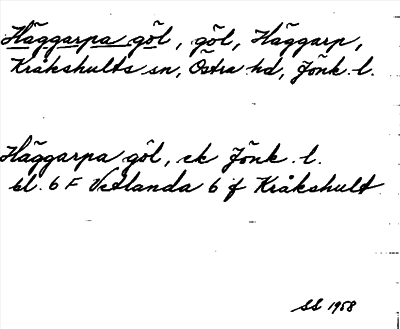 Häggarpa göl, göl, Häggarp,
Kråkshults sn, Östra hd, Jönk. l.
Häggarpa göl, ek Jönk. l.
bl. 6 F Vetlanda 6 f Kråkshult
SS 1958